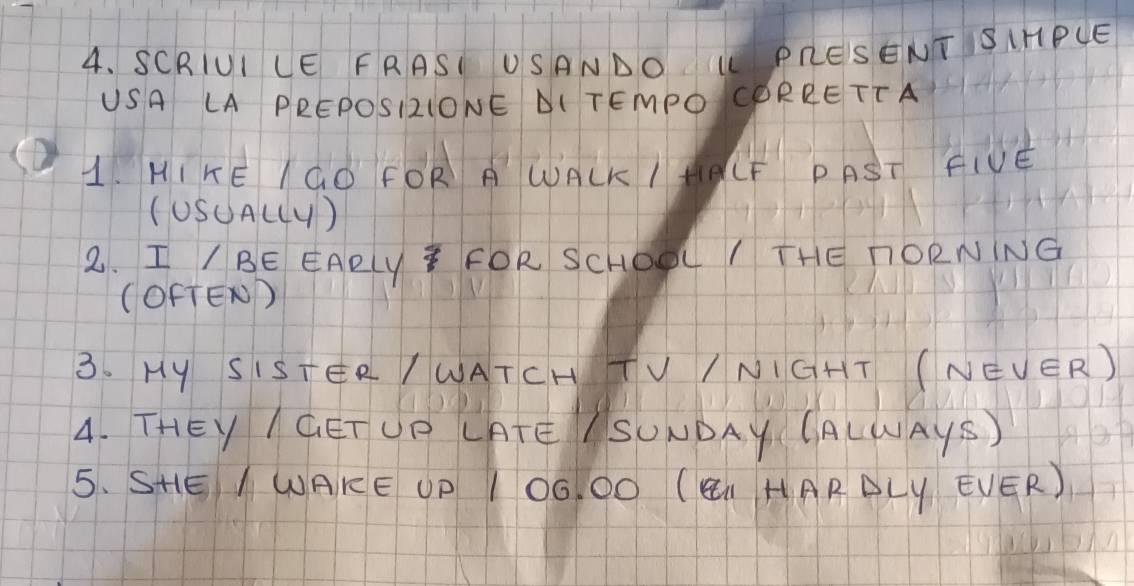 4. SCRIVI LE FRASI USANDO IL PRESENT SIMPLE
USA LA PREPOSIZIONE DI TEMPO CORRETTA
1. MIKE / GO FOR A WALK / HALF PAST FIVE
(USUALLY)
2. I / BE EARLY FOR SCHOOL / THE MORNING
(OFTEN)
3. MY SISTER / WATCH TV / NIGHT (NEVER)
4. THEY / GET UP LATE / SUNDAY (ALWAYS)
5. SHE / WAKE UP / 06.00 (HARDLY EVER)